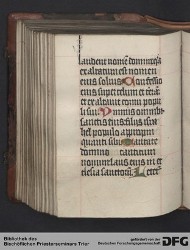 laudent nomē domini qͥa
exaltatum est nomen
eius solius Confessio
eius super celum et terrā
et exaltauit cornu popu
li sui Ymnus omnibꝫ
sanctis eius filiis isrł
populo
sibi
domino canticum
nouum laus eius in ec
clesia sanctorum Lete
Bibliothek des
Bischöflichen Priesterseminars Trier
gefördert von der
Deutschen Forschungsgemeinschaft
DFG